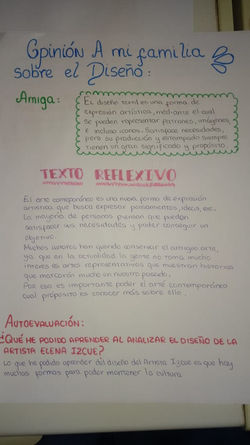 Opinión A mi familia
sobre el Diseño:
Amiga:
El diseño textil es una forma de
expresión artística, mediante el cual
Se pueden representar patrones, imágenes,
e incluso iconos. Satisface necesidades,
pero su producción y estampado siempre
tienen un gran significado y propósito.
TEXTO REFLEXIVO
El arte contemporáneo es una nueva forma de expresión
artística que busca expresar pensamientos, ideas, etc..
La mayoría de personas piensan que puedan
satisfacer sus necesidades y poder conseguir un
objetivo.
Muchos autores han querido conservar el antiguo arte,
ya que en la actualidad la gente no toma mucho
interés es artes representativos que muestran historias
que marcaron mucho en nuestro pasado.
Por eso es importante poder el arte contemporáneo
cual propósito es conocer más sobre ello.
AUTOEVALUACIÓN:
¿QUÉ HE PODIDO APRENDER AL ANALIZAR EL DISEÑO DE LA
ARTISTA ELENA IZCUE?
Lo que he podido aprender del diseño del Artista Izcue es que hay
muchas formas para poder mantener la cultura